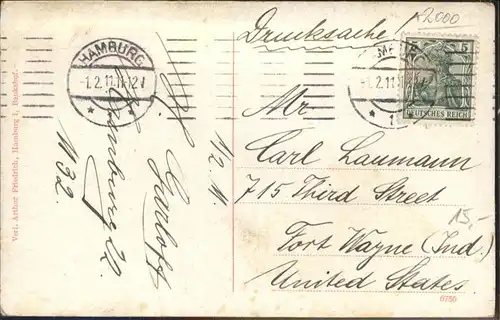 A2000
Drucksache
HAMBURG
-1.2.11.11-12V
*
*
-1.2.11.11
5
DEUTSCHES REICH
Mr
Carl Laumann
715 Third Street
Fort Wayne (Ind.)
United States.
15,-
1/2.11.
Garloff
Hamburg 22.
W 32.
Verl. Arthur Friedrich, Hamburg 1,
6750